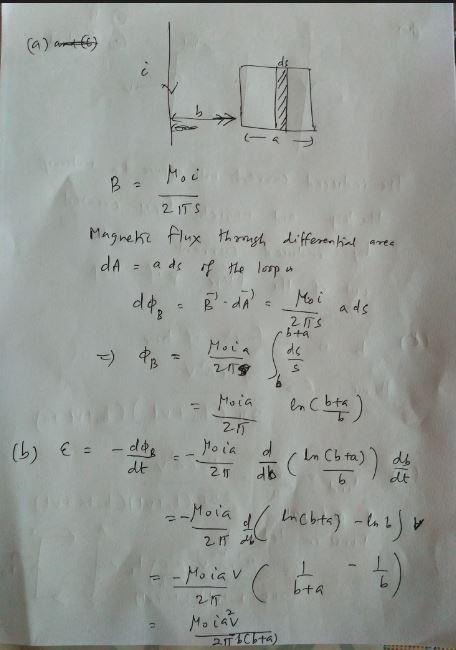 (a) and (c)
i
ds
b
(— a —)
B = μ₀i / 2πs
Magnetic flux through differential area
dA = a ds of the loop is
dΦ_B = B⃗ · dA⃗ = μ₀i / 2πs a ds
⇒ Φ_B = μ₀ia / 2π ∫_b^{b+a} ds / s
= μ₀ia / 2π ln (b+a / b)
(b) ε = - dΦ_B / dt = - μ₀ia / 2π d / db (ln (b+a) / b) db / dt
= - μ₀ia / 2π d / db ( ln(b+a) - ln b )
= - μ₀iav / 2π ( 1 / b+a - 1 / b )
= μ₀ia²v / 2πb(b+a)